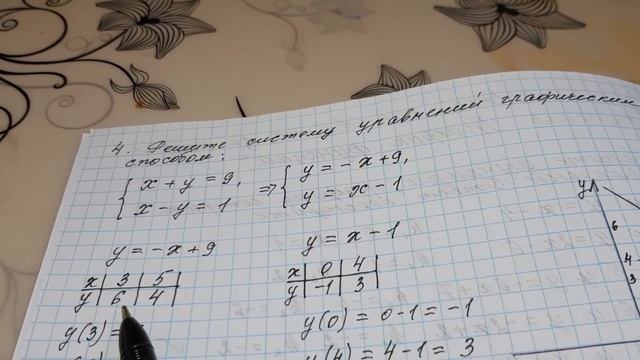 4. Решите систему уравнений графическим
способом:
{ x + y = 9, ⇒ { y = -x + 9,
{ x - y = 1 { y = x - 1
y = -x + 9
x | 3 | 5
y | 6 | 4
y(3) =
y = x - 1
x | 0 | 4
y | -1 | 3
y(0) = 0-1 = -1
y(4) = 4-1 = 3
y
6
4
3